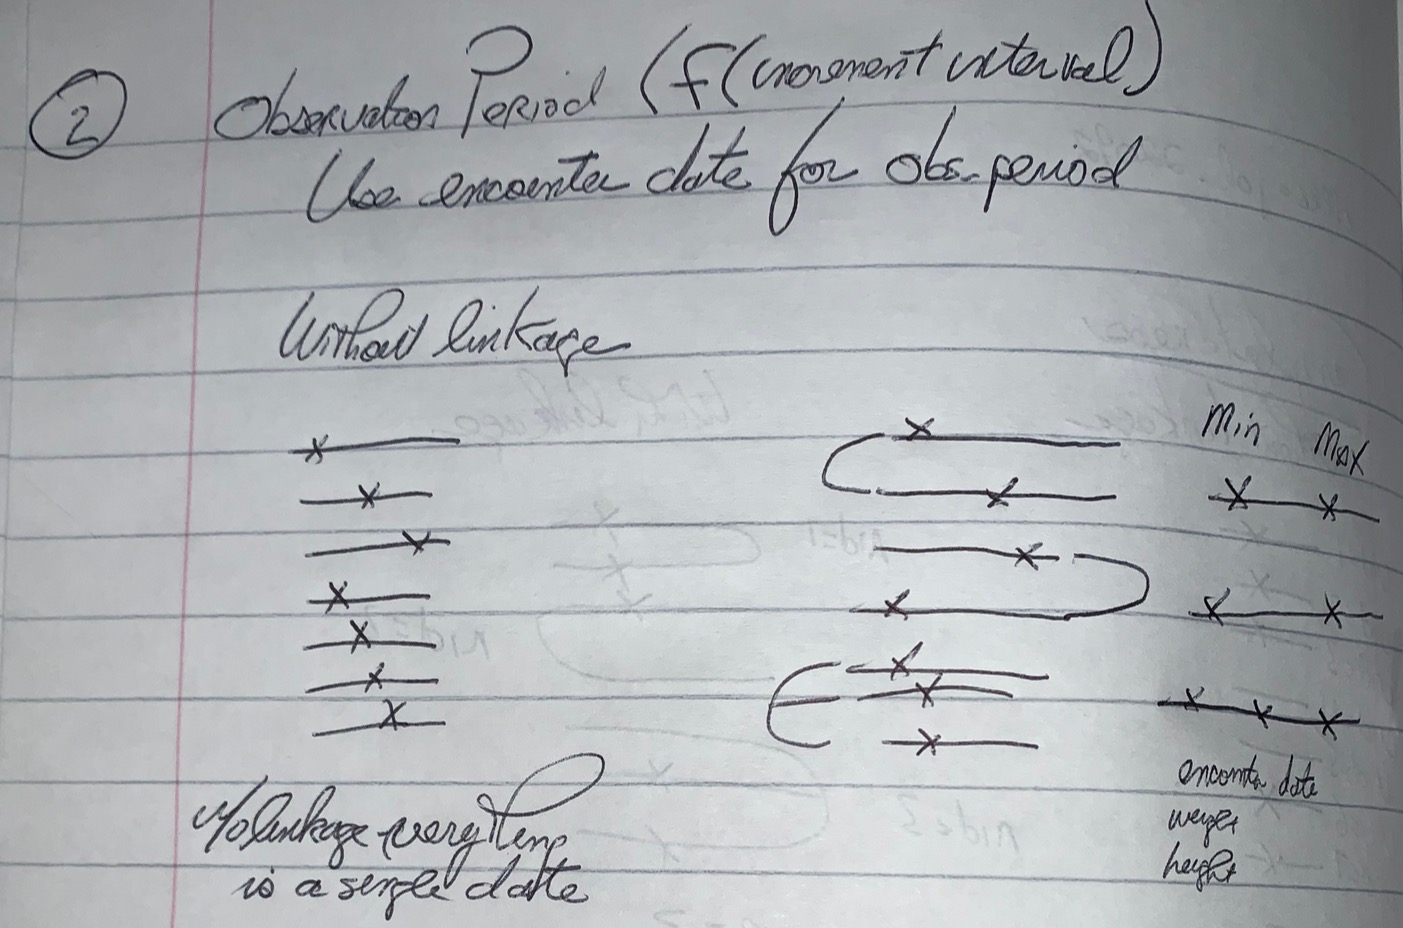 2
Observation Period (f(increment interval)
Use encounter date for obs. period
Without linkage
Min Max
No linkage everything
is a single date
encounter date
weight
height